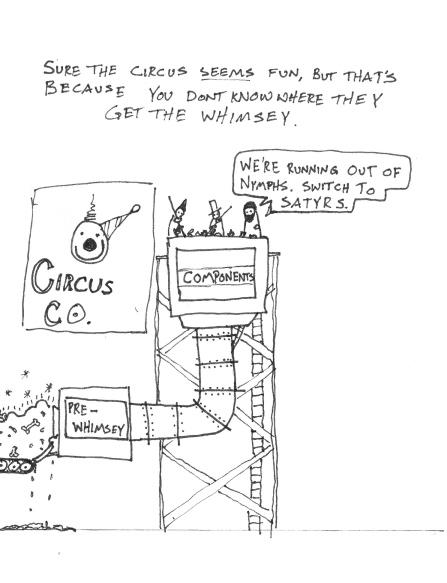 SURE THE CIRCUS SEEMS FUN, BUT THAT'S
BECAUSE YOU DONT KNOW WHERE THEY
GET THE WHIMSEY.
WE'RE RUNNING OUT OF
NYMPHS. SWITCH TO
SATYRS.
CIRCUS
CO.
COMPONENTS
PRE-
WHIMSEY